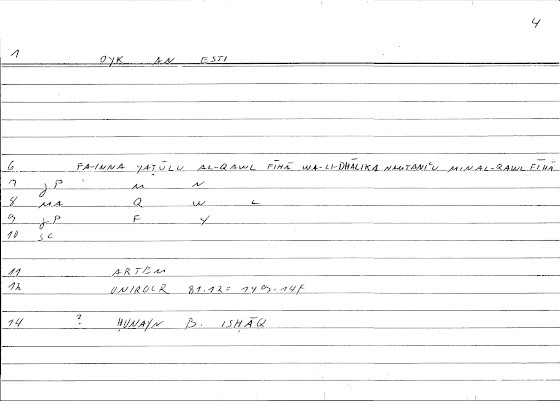 4
1 OYK AN ESTI
6 FA-INNA YAṬŪLU AL-QAWL FĪHĀ WA-LI-DHĀLIKA NAMTANIʿU MIN AL-QAWL FĪHĀ
7 gP M N
8 MA Q W L
9 gP F Y
10 SC
11 ARTEM
12 ONIROCR 81.12 = 149.14F
14 ? ḤUNAYN B. ISḤĀQ